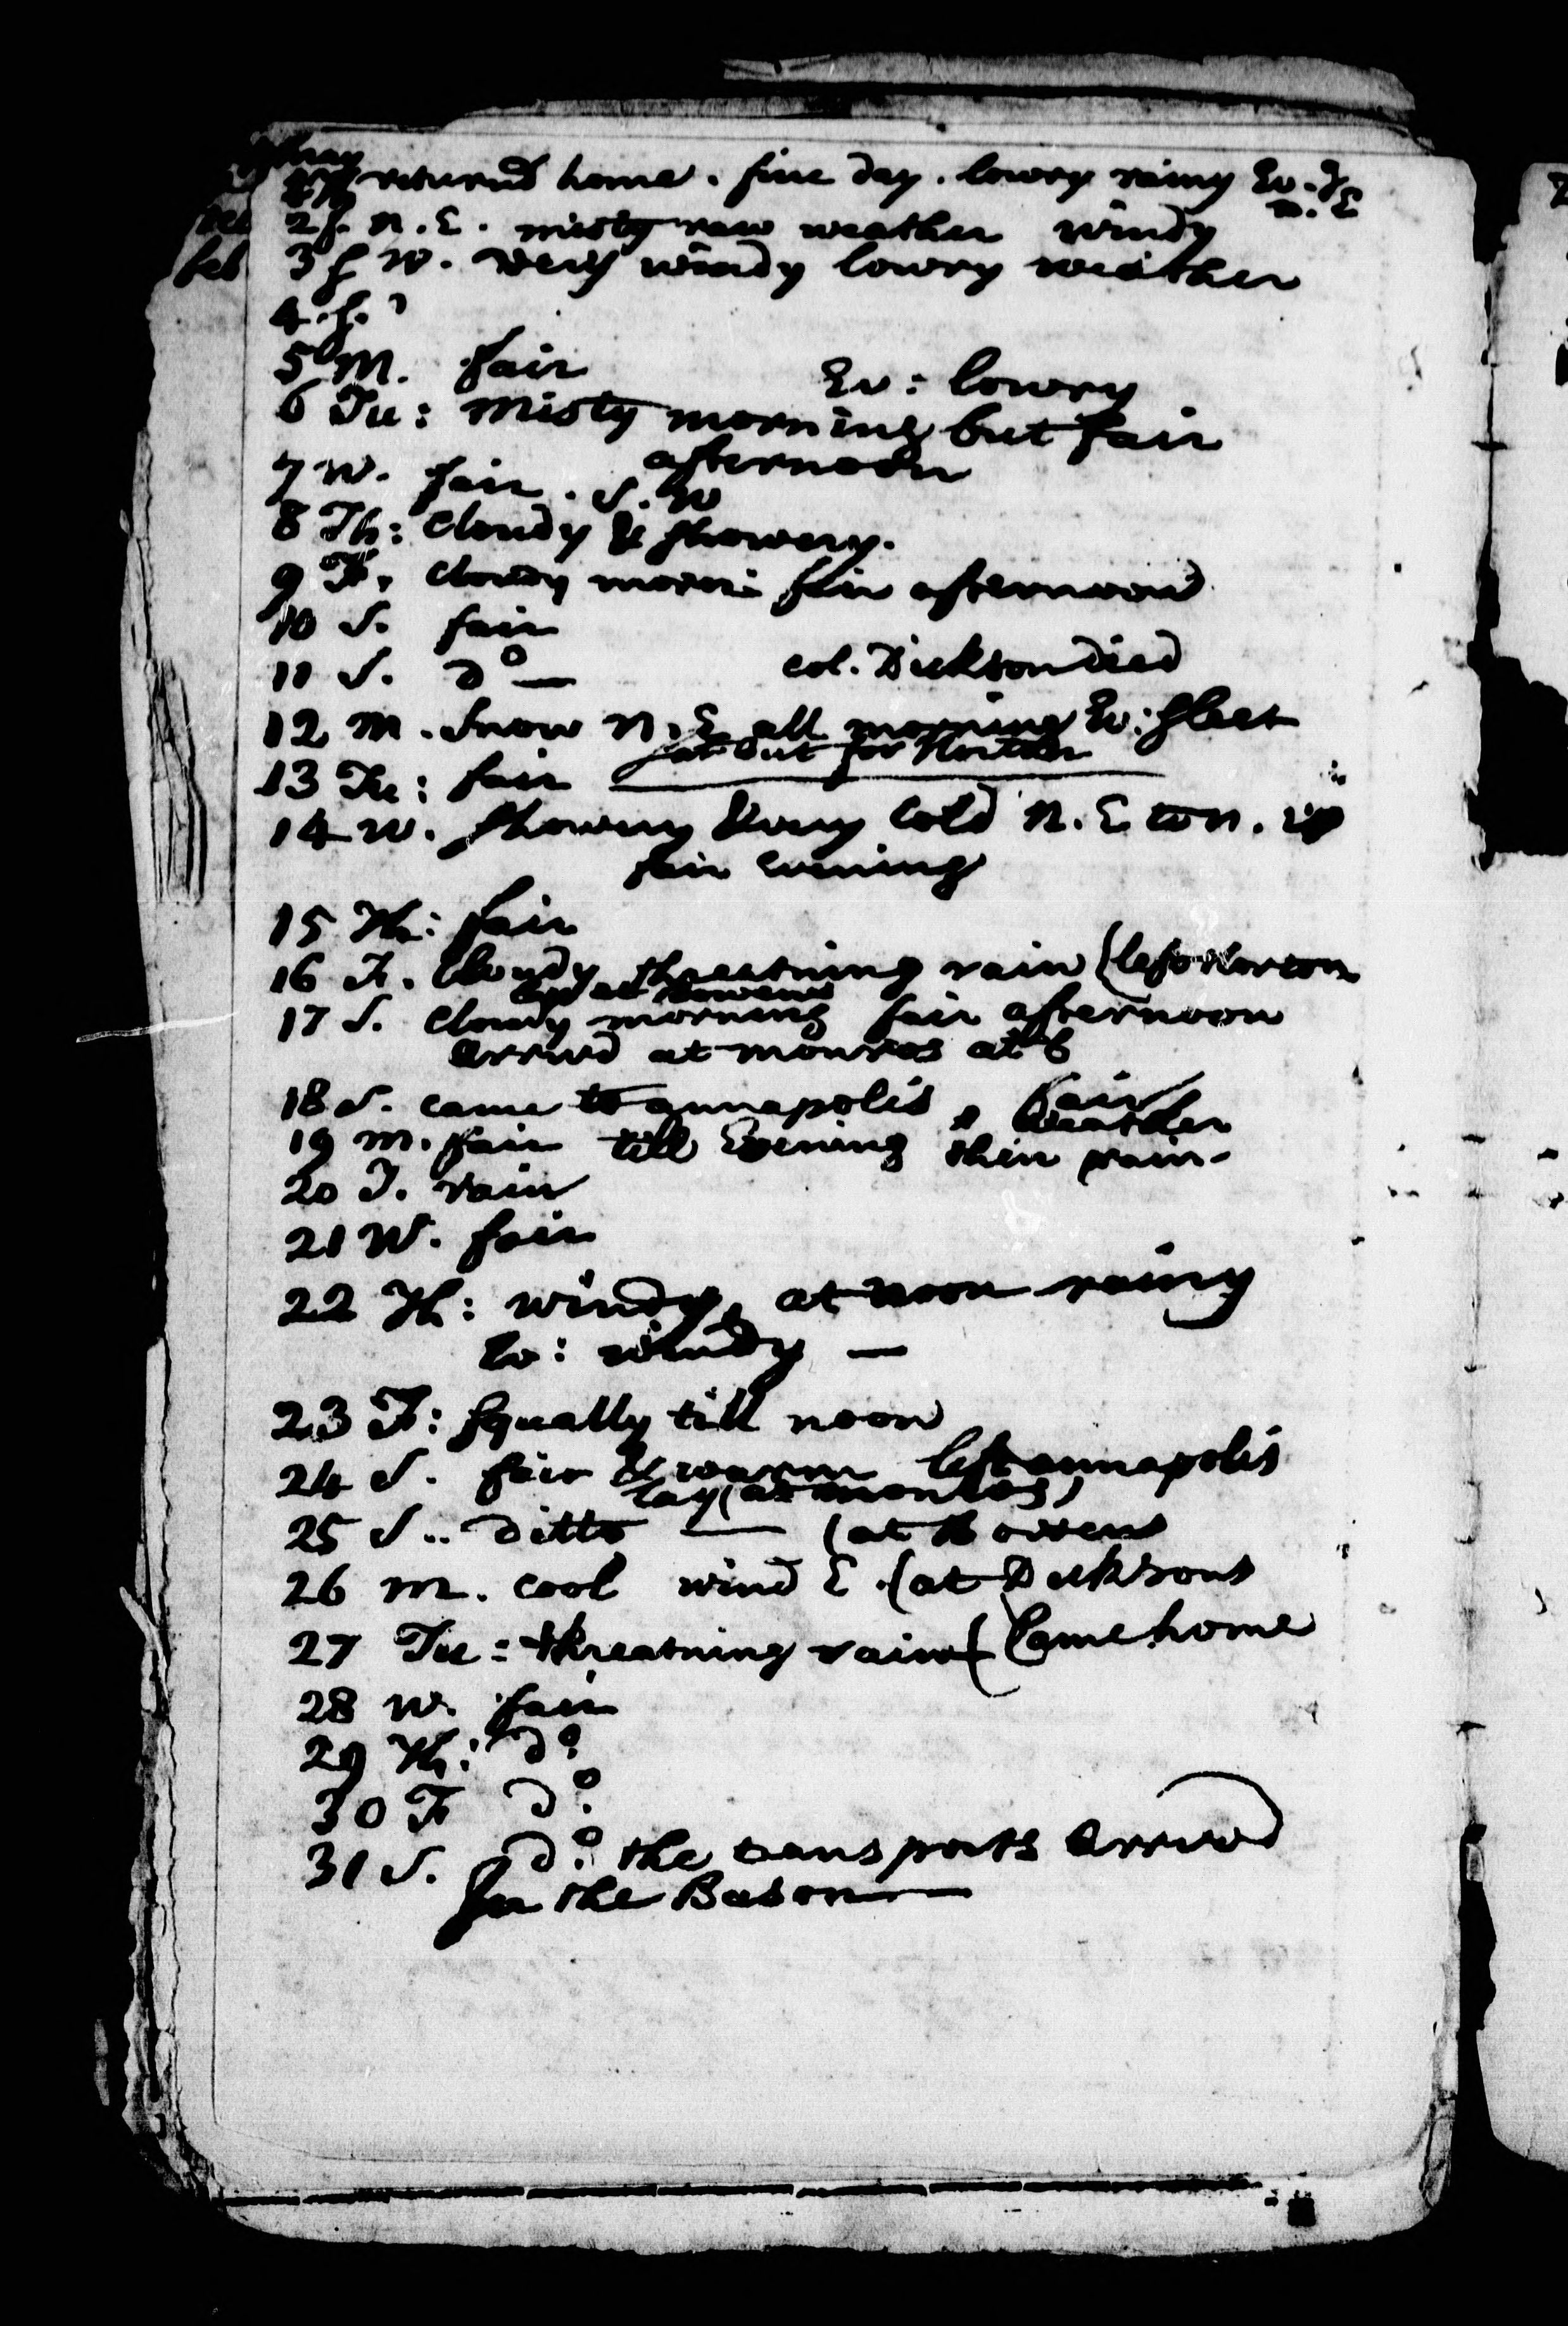 May
returnd home. fine day. lowry rainy Ev. &
n. E
2 f. n. E. misty raw weather windy
3 f W. very windy lowry weather
4. f.
5 M. fair Ev: lowry
6 Tu: misty morning but fair
afternoon
7 W. fair. S. W
8 Th: cloudy & showery.
9 F. cloudy morn: fair afternoon
10 S. fair
11 S. do — col. Dickson died
12 M. Snow N. E all morning Ev: sleet
13 Tu: fair set out for Horton
14 W. showery & very cold N. E to N. W
fair evening
15 Th: fair
16 F. Cloudy threatning rain (left Horton
lay at Bowens
17 S. cloudy morning fair afternoon
arrivd at monros at 6
18 S. came to annapolis, fair
weather
19 M. fair till Evening then rain-
20 T. rain
21 W. fair
22 Th: windy, at noon rainy
Ev: windy —
23 F: squally till noon
24 S. fair & warm left annapolis
lay (at monros)
25 S.. ditto — (at Bowens
26 M. cool wind E. (at Dicksons
27 Tu: threatning rain (Came home
28 W. fair
29 Th: do
30 F do
31 S. do the transports arrivd
In the Bason —